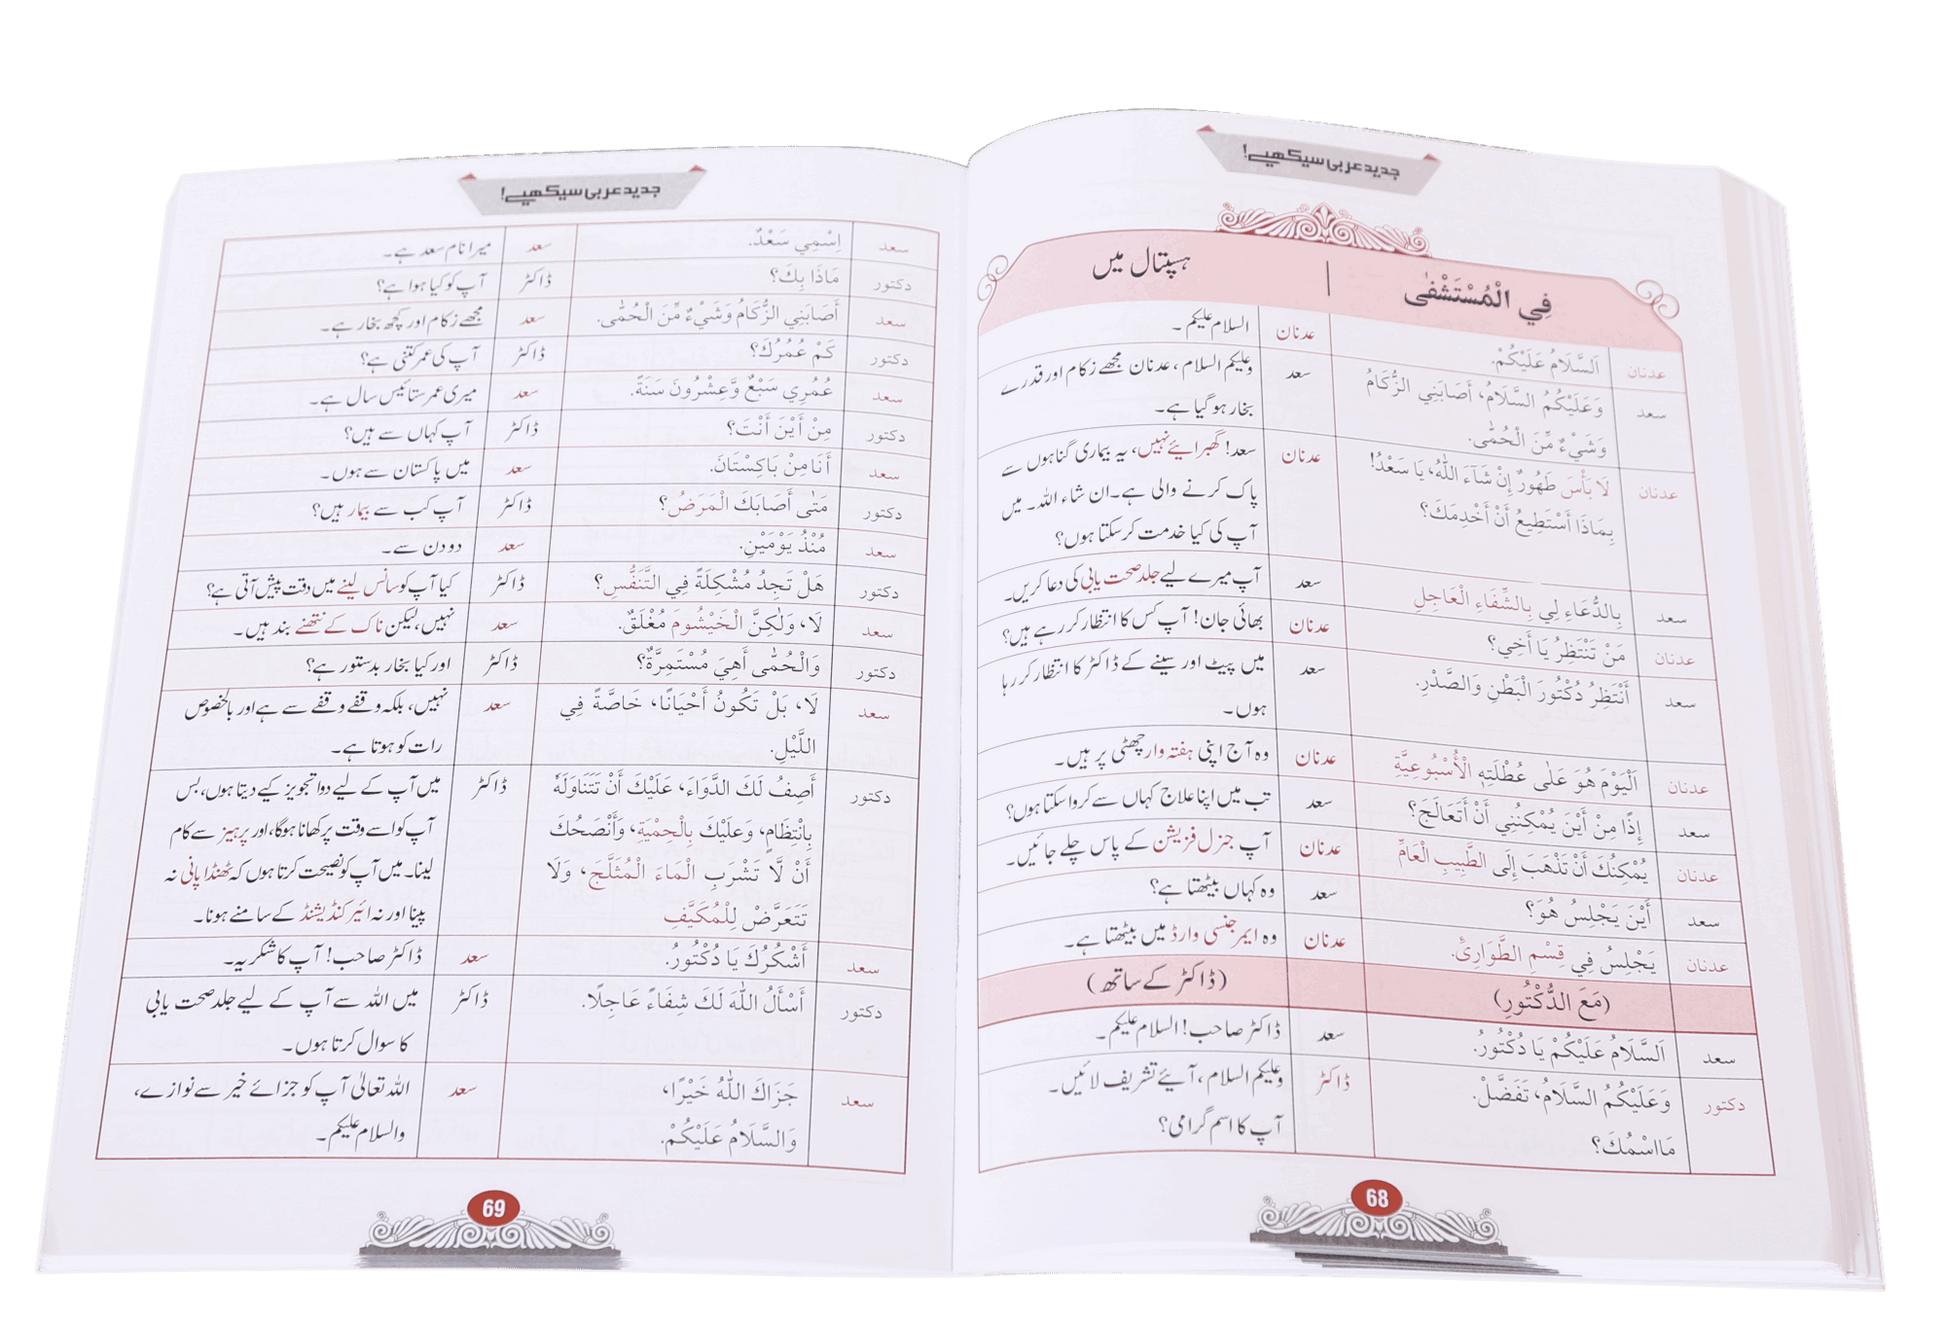 جدید عربی سیکھیے!
فِي الْمُسْتَشْفٰى | ہسپتال میں
عدنان اَلسَّلَامُ عَلَيْكُمْ. عدنان السلام علیکم۔
سعد وَعَلَيْكُمُ السَّلَامُ، أَصَابَنِي الزُّكَامُ سعد وعلیکم السلام، عدنان مجھے زکام اور قدرے
وَشَيْءٌ مِّنَ الْحُمّٰى. بخار ہو گیا ہے۔
عدنان لَا بَأْسَ طَهُورٌ إِنْ شَآءَ اللّٰهُ، يَا سَعْدُ! عدنان سعد! گھبرائیے نہیں، یہ بیماری گناہوں سے
بِمَاذَا أَسْتَطِيعُ أَنْ أَخْدِمَكَ؟ پاک کرنے والی ہے۔ ان شاء اللہ۔ میں
آپ کی کیا خدمت کر سکتا ہوں؟
سعد بِالدُّعَاءِ لِي بِالشِّفَاءِ الْعَاجِلِ سعد آپ میرے لیے جلد صحت یابی کی دعا کریں۔
عدنان مَنْ تَنْتَظِرُ يَا أَخِي؟ عدنان بھائی جان! آپ کس کا انتظار کر رہے ہیں؟
سعد أَنْتَظِرُ دُكْتُورَ الْبَطْنِ وَالصَّدْرِ. سعد میں پیٹ اور سینے کے ڈاکٹر کا انتظار کر رہا
ہوں۔
عدنان اَلْيَوْمَ هُوَ عَلٰى عُطْلَتِهِ الْأُسْبُوعِيَّةِ عدنان وہ آج اپنی ہفتہ وار چھٹی پر ہیں۔
سعد إِذًا مِنْ أَيْنَ يُمْكِنُنِي أَنْ أَتَعَالَجَ؟ سعد تب میں اپنا علاج کہاں سے کروا سکتا ہوں؟
عدنان يُمْكِنُكَ أَنْ تَذْهَبَ إِلَى الطَّبِيبِ الْعَامِّ عدنان آپ جنرل فزیشن کے پاس چلے جائیں۔
سعد أَيْنَ يَجْلِسُ هُوَ؟ سعد وہ کہاں بیٹھتا ہے؟
عدنان يَجْلِسُ فِي قِسْمِ الطَّوَارِئِ. عدنان وہ ایمرجنسی وارڈ میں بیٹھتا ہے۔
(مَعَ الدُّكْتُورِ) (ڈاکٹر کے ساتھ)
سعد اَلسَّلَامُ عَلَيْكُمْ يَا دُكْتُورُ. سعد ڈاکٹر صاحب! السلام علیکم۔
دكتور وَعَلَيْكُمُ السَّلَامُ، تَفَضَّلْ. ڈاکٹر وعلیکم السلام، آیئے تشریف لائیں۔
مَا اسْمُكَ؟ آپ کا اسم گرامی؟
68
جدید عربی سیکھیے!
سعد اِسْمِي سَعْدٌ. سعد میرا نام سعد ہے۔
دكتور مَاذَا بِكَ؟ ڈاکٹر آپ کو کیا ہوا ہے؟
سعد أَصَابَنِي الزُّكَامُ وَشَيْءٌ مِّنَ الْحُمّٰى. سعد مجھے زکام اور کچھ بخار ہے۔
دكتور كَمْ عُمُرُكَ؟ ڈاکٹر آپ کی عمر کتنی ہے؟
سعد عُمُرِي سَبْعٌ وَّعِشْرُونَ سَنَةً. سعد میری عمر ستائیس سال ہے۔
دكتور مِنْ أَيْنَ أَنْتَ؟ ڈاکٹر آپ کہاں سے ہیں؟
سعد أَنَا مِنْ بَاكِسْتَانَ. سعد میں پاکستان سے ہوں۔
دكتور مَتٰى أَصَابَكَ الْمَرَضُ؟ ڈاکٹر آپ کب سے بیمار ہیں؟
سعد مُنْذُ يَوْمَيْنِ. سعد دو دن سے۔
دكتور هَلْ تَجِدُ مُشْكِلَةً فِي التَّنَفُّسِ؟ ڈاکٹر کیا آپ کو سانس لینے میں دقت پیش آتی ہے؟
سعد لَا، وَلٰكِنَّ الْخَيْشُومَ مُغْلَقٌ. سعد نہیں، لیکن ناک کے نتھنے بند ہیں۔
دكتور وَالْحُمّٰى أَهِيَ مُسْتَمِرَّةٌ؟ ڈاکٹر اور کیا بخار بدستور ہے؟
سعد لَا، بَلْ تَكُونُ أَحْيَانًا، خَاصَّةً فِي سعد نہیں، بلکہ وقفے وقفے سے ہے اور بالخصوص
اللَّيْلِ. رات کو ہوتا ہے۔
دكتور أَصِفُ لَكَ الدَّوَاءَ، عَلَيْكَ أَنْ تَتَنَاوَلَهٗ ڈاکٹر میں آپ کے لیے دوا تجویز کیے دیتا ہوں، بس
بِانْتِظَامٍ، وَعَلَيْكَ بِالْحِمْيَةِ، وَأَنْصَحُكَ آپ کو اسے وقت پر کھانا ہوگا، اور پرہیز سے کام
أَنْ لَّا تَشْرَبِ الْمَاءَ الْمُثَلَّجَ، وَلَا لینا۔ میں آپ کو نصیحت کرتا ہوں کہ ٹھنڈا پانی نہ
تَتَعَرَّضْ لِلْمُكَيَّفِ پینا اور نہ ائیر کنڈیشنڈ کے سامنے ہونا۔
سعد أَشْكُرُكَ يَا دُكْتُورُ. سعد ڈاکٹر صاحب! آپ کا شکریہ۔
دكتور أَسْأَلُ اللّٰهَ لَكَ شِفَاءً عَاجِلًا. ڈاکٹر میں اللہ سے آپ کے لیے جلد صحت یابی
کا سوال کرتا ہوں۔
سعد جَزَاكَ اللّٰهُ خَيْرًا، سعد اللہ تعالیٰ آپ کو جزائے خیر سے نوازے،
وَالسَّلَامُ عَلَيْكُمْ. والسلام علیکم۔
69